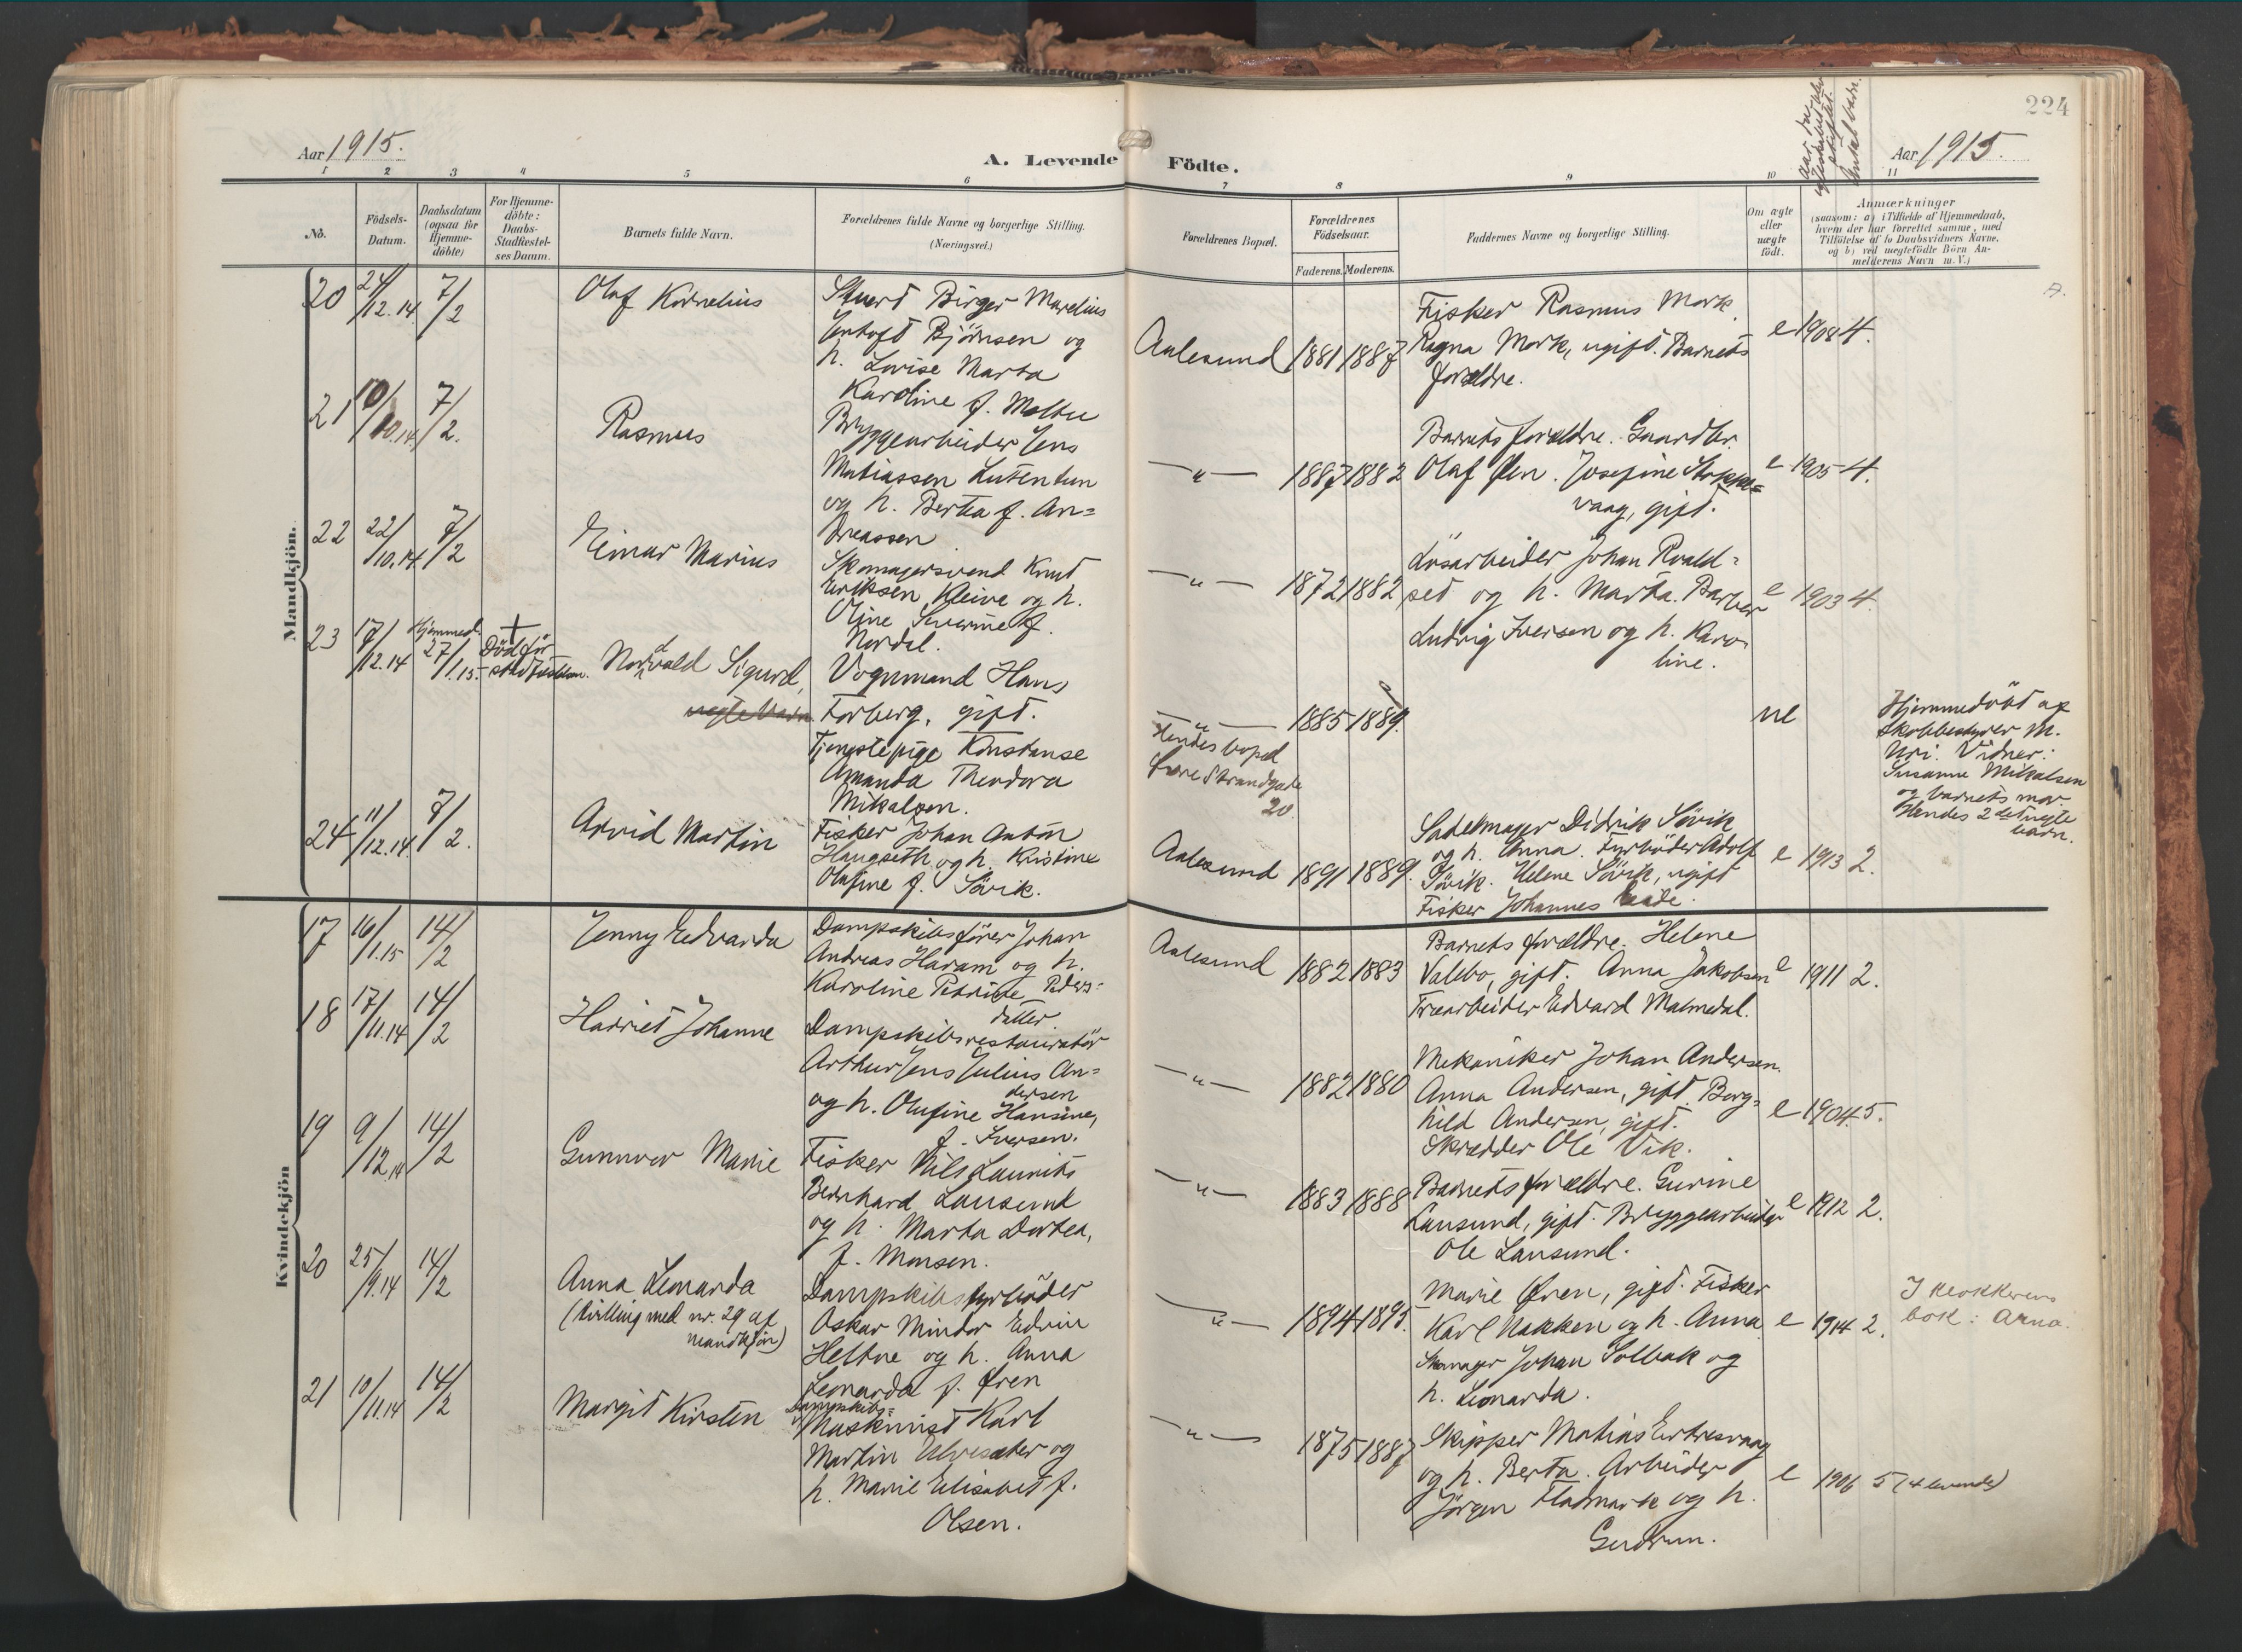 224
Aar 1915.
A. Levende Födte.
Aar 1915.
Antal barn.
1 2 3 4 5 6 7 8 9 10 11
No.
Födsels-
Datum.
Daabsdatum
(ogsaa for
Hjemme-
döbte)
For Hjemme-
döbte:
Daabs-
Stadfæstel-
ses Datum.
Barnets fulde Navn.
Forældrenes fulde Navne og borgerlige Stilling.
(Næringsvei.)
Forældrenes Bopæl.
Forældrenes
Födselsaar.
Faderens. Moderens.
Faddernes Navne og borgerlige Stilling.
Om ægte
eller
uægte
födt.
Anmærkninger
(saasom: a) i Tilfælde af Hjemmedaab,
hvem der har forrettet samme, med
Tilföielse af to Daabsvidners Navne,
og b) ved uægtefödte Börn An-
melderens Navn m. V.)
Mandkjön.
20 24/12.14 7/2
Olaf Kornelius
Stuert Birger Marelius
Jentoft Björnsen og
h. Lovise Marta
Karoline f. Moltu
Aalesund 1881 1887
Fisker Rasmus Mork
Ragna Mork, ugift. Barnets
forældre.
e 1908 4.
21 10/10.14 7/2.
Rasmus
Bryggearbeider Jens
Matiassen Lutentun
og h. Berta f. An=
dreassen
—"— 1887 1882
Barnets forældre. Gaardbr.
Olaf Øen. Josefine Stokke=
vaag, gift.
e 1905 4.
22 22/10.14 7/2
Einar Marius
Skomagersvend Knut
Eriksen Kleive og h.
Oline Severine f.
Nordal.
—"— 1872 1882
Løsarbeider Johan Roald=
set og h. Marta. Barber
Ludvig Iversen og h. Karo-
line.
e 1903 4.
23 17/12.14 Hjemmed. 27/1.15. + Död för
stadfæstelsen.
Nordvald Sigurd,
uegte barn
Vognmand Hans
Forberg, gift.
Tjenestepige Konstanse
Amanda Theodora
Mikalsen.
—"— 1885 1889.
Hendes bopæl
Øvre Strandgade
20.
ue
Hjemmedöbt af
skolebestyrer M.
Uri. Vidner:
Susanne Mikalsen
og barnets mor.
Hendes 2det uegte
barn.
24 11/12.14 7/2.
Arvid Martin
Fisker Johan Anton
Haugseth og h. Kristine
Olufine f. Sövik.
Aalesund 1891 1889.
Sadelmager Didrik Sövik
og h. Anna. Fyrböder Adolf
Sövik. Helene Sövik, ugift
Fisker Johannes
e 1913 2.
Kvindekjön
17 16/1.15 14/2
Jenny Edvarda
Dampskibsförer Johan
Andreas Haram og h.
Karoline Petrine Peders=
datter.
Aalesund 1882 1883
Barnets forældre. Helene
Valebo, gift. Anna Jakobsen
Træarbeider Edvard Malmedal.
e 1911 2.
18 17/11.14 14/2
Harriet Johanne
Dampskibsrestauratör
Arthur Jens Julius An=
dersen
og h. Olufine Hansine,
f. Iversen.
—"— 1882 1880
Mekaniker Johan Andersen.
Anna Andersen, gift. Borg=
hild Andersen, gift.
Skrædder Ole Vik.
e 1904 5.
19 9/12.14 14/2
Gunnvor Marie
Fisker Nils Laurits
Bernhard Lausund
og h. Marta Dortea,
f. Monsen.
—"— 1883 1888
Barnets forældre. Gurine
Lausund, gift. Bryggearbeider
Ole Lausund.
e 1912 2.
20 25/9.14 14/2
Anna Leonarda
(tvilling med nr. 29 af
mandkjön)
Dampskibsfyrböder
Oskar Mindor Edvin
Heltne og h. Anna
Leonarda f. Øren
—"— 1894 1895.
Marie Øren, gift. Fisker
Karl Nakken og h. Anna
Skomager Johan Solbak og
h. Leonarda.
e 1914 2.
I klokkerens
bok: Arna.
21 10/11.14 14/2
Margit Kirsten
Dampskibs=
Maskinist Karl
Martin Ulvesæter og
h. Marie Elisabet f.
Olsen.
—"— 1875 1887
Skipper Matias Ertesvaag
og h. Berta. Arbeider
Jörgen Fladmark og h.
Gudrun.
e 1906 5 (4 levende)